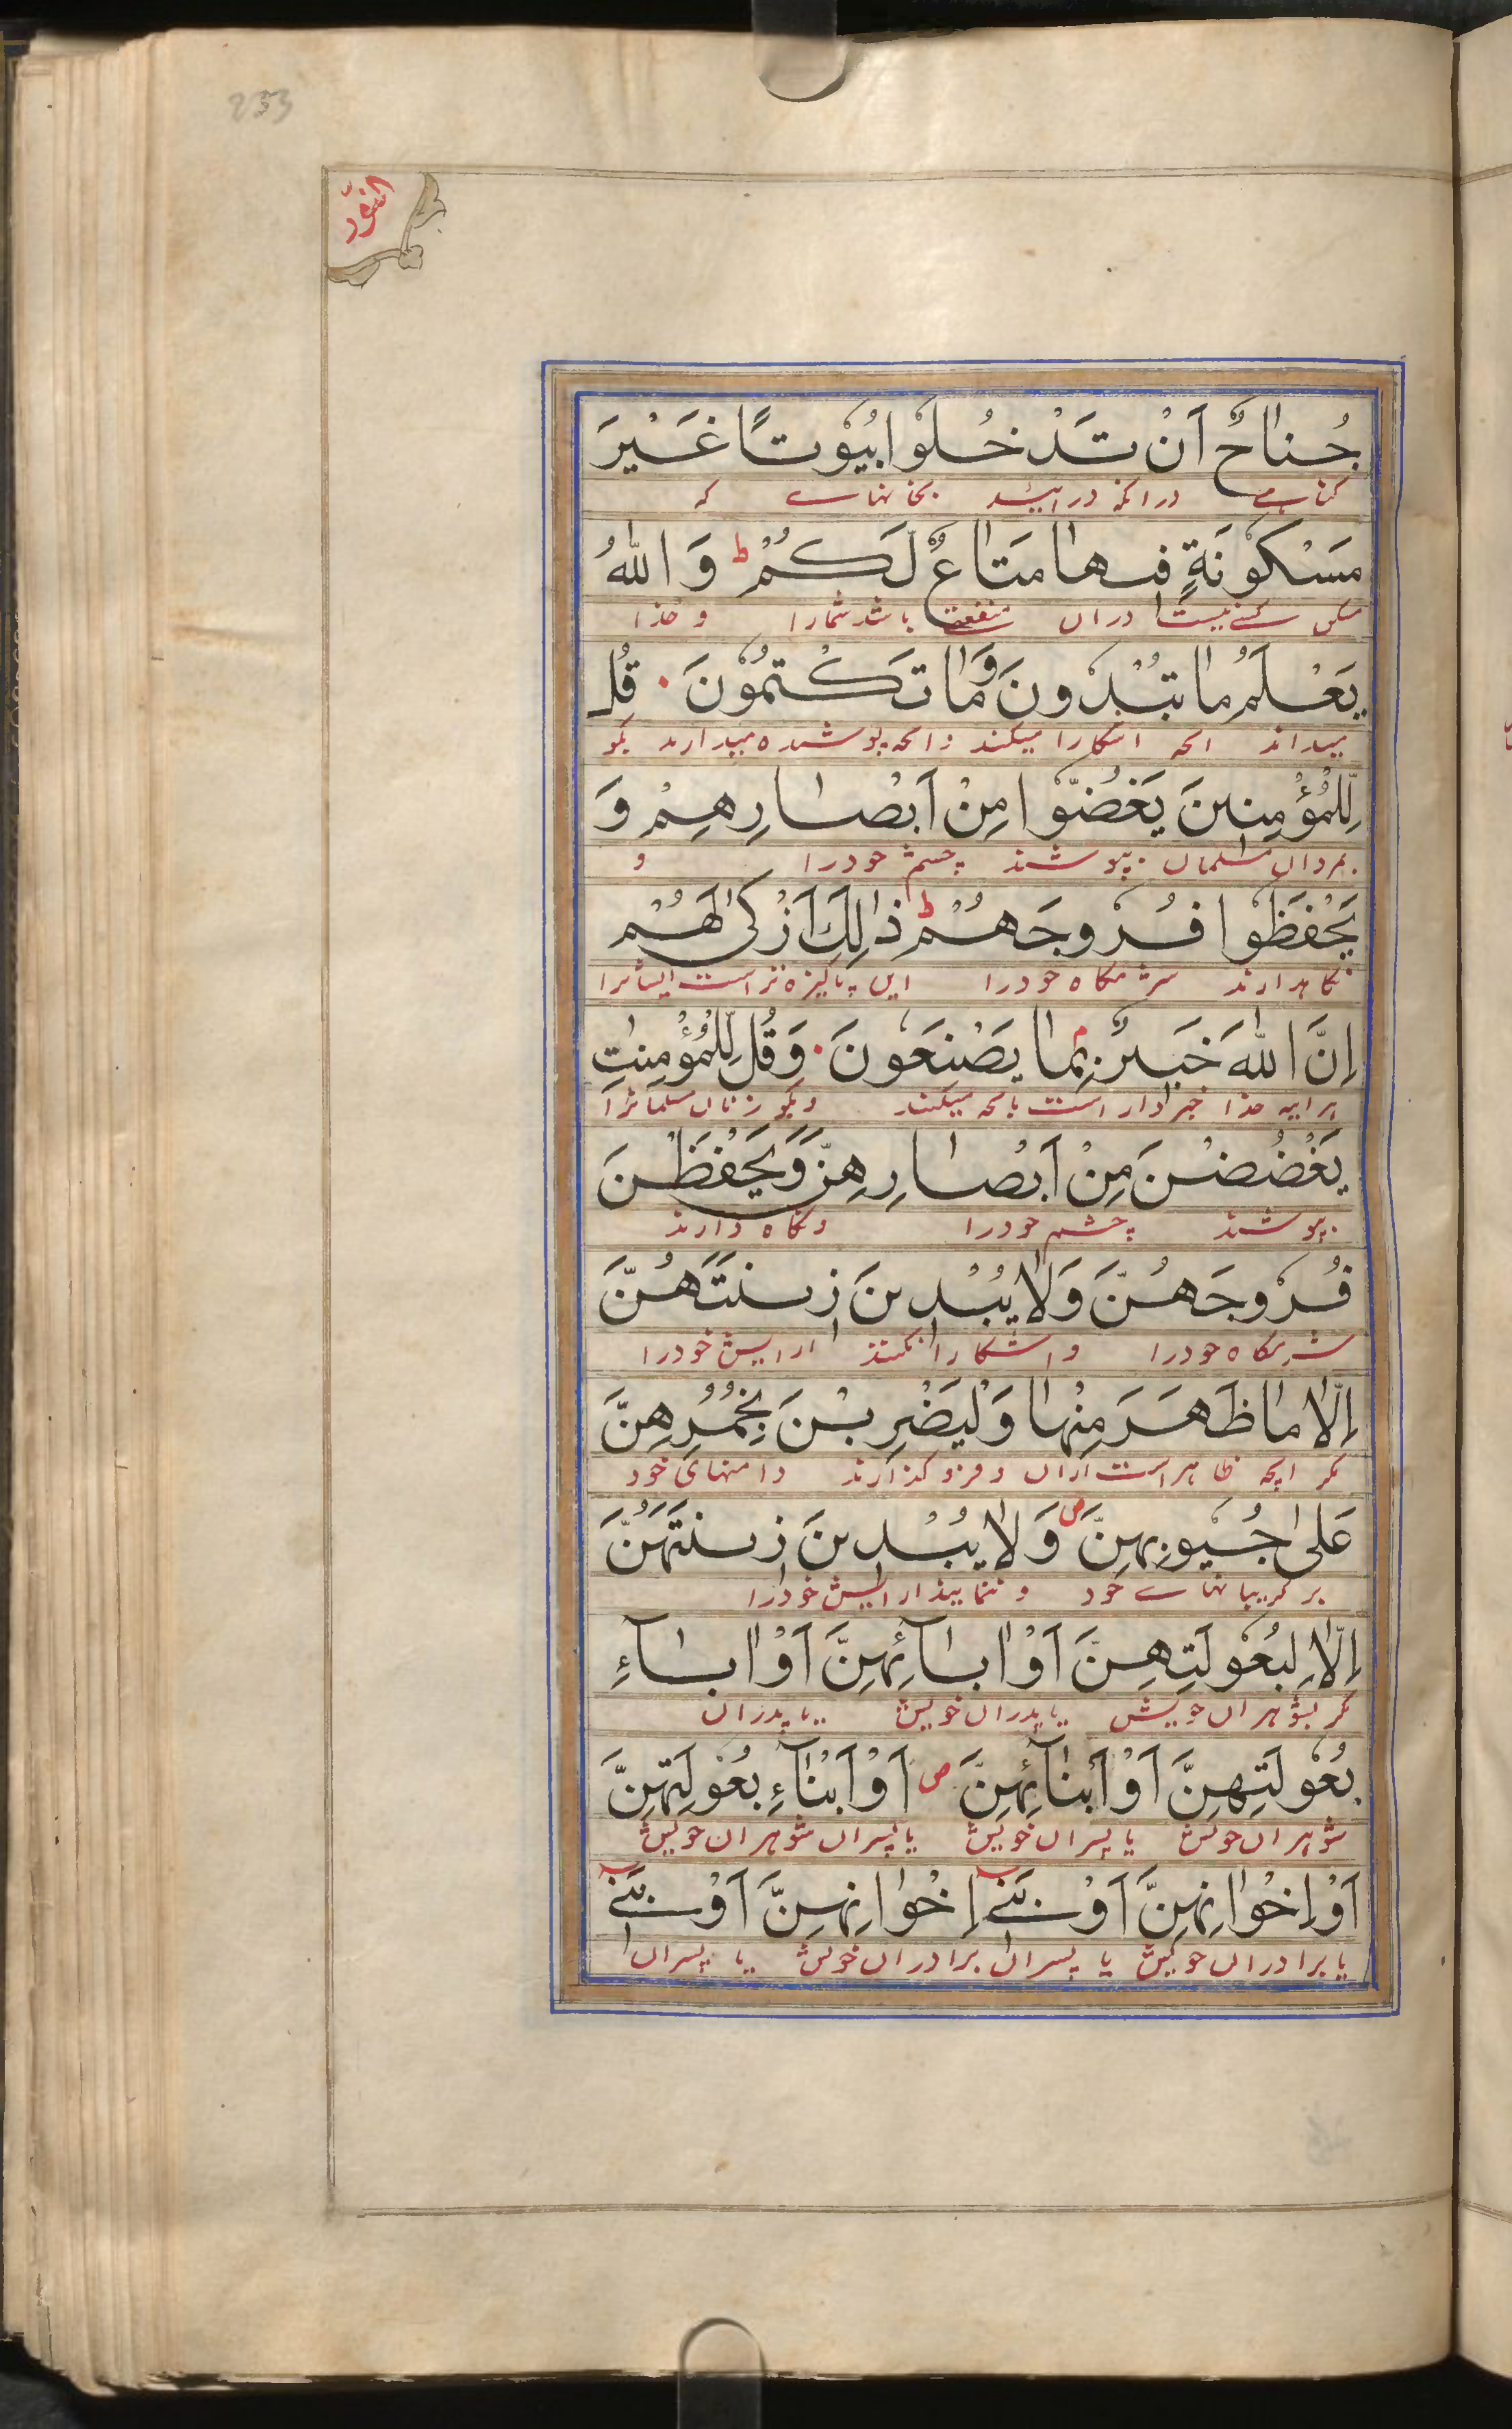 233
النّور
جُناحٌ اَنْ تَدْخُلُوْا بُيُوْتًا غَيْرَ
کناہے درانکه درائید بخانهاے که
مَسْكُوْنَةٍ فيها مَتاعٌ لَكُمْ ط وَ اللهُ
کسے نیست دران منفعت باشد شمارا و خدا
يَعْلَمُ ما تُبْدُوْنَ وَما تَكْتُمُوْنَ ۰ قُل
میداند انچه اشکارا میکنند وانچه پوشیده میدارند بکو
لِلْمُؤْمِنينَ يَغُضُّوْا مِنْ اَبْصارِهِمْ وَ
بمردان مسلمان بپوشند چشم خودرا و
يَحْفَظُوْا فُرُوْجَهُمْ ط ذالِكَ اَزْكى لَهُمْ
نکاهدارند شرمکاه خودرا این پاکیزه تر است ایشانرا
اِنَّ اللهَ خَبيرٌ م بِما يَصْنَعُوْنَ ۰ وَقُل لِلْمُؤْمِنٰتِ
خدا خبردار است بانچه میکنند وبکو زنان مسلمانرا
يَغْضُضْنَ مِنْ اَبْصارِهِنَّ وَيَحْفَظْنَ
بپوشند چشم خودرا ونکاه دارند
فُرُوْجَهُنَّ وَلا يُبْدينَ زينَتَهُنَّ
شرمکاه خودرا واشکارا نکنند ارایش خودرا
اِلّا ما ظَهَرَ مِنْها وَلْيَضْرِبْنَ بِخُمُرِهِنَّ
مکر انچه ظاهر است ازان و فرو کذارند دامنهای خود
عَلى جُيُوْبِهِنَّ ص وَلا يُبْدينَ زينَتَهُنَّ
بر کریبانهاے خود و ننمایند ارایش خودرا
اِلّا لِبُعُوْلَتِهِنَّ اَوْ ابآئِهِنَّ اَوْ ابآءِ
مکر بشوهران خویش یا پدران خویش یا پدران
بُعُوْلَتِهِنَّ اَوْ اَبْنآئِهِنَّ ص اَوْ اَبْنآءِ بُعُوْلَتِهِنَّ
شوهران خویش یا پسران خویش یا پسران شوهران خویش
اَوْ اِخْوانِهِنَّ اَوْ بَنے اِخْوانِهِنَّ اَوْ بَنے
یا برادران خویش یا پسران برادران خویش یا پسران